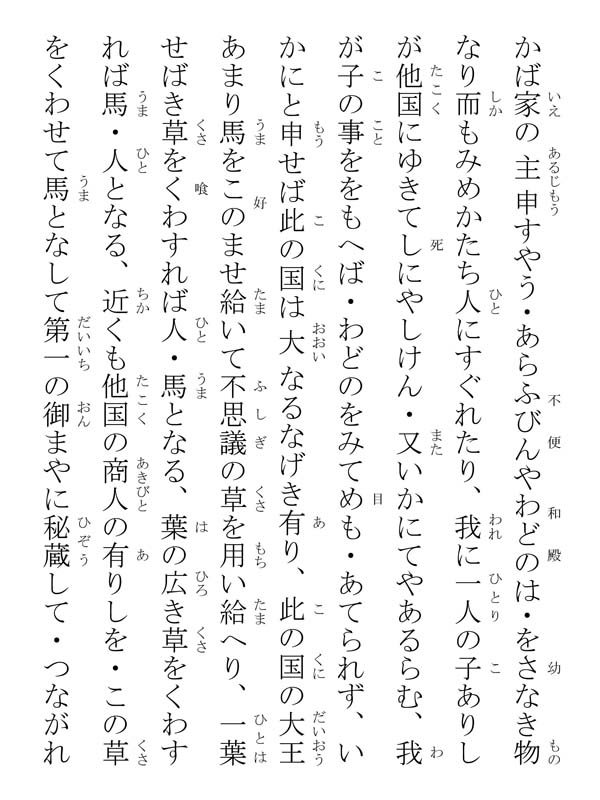 かば家の主申すやう・あらふびんやわどのは・をさなき物
なり而もみめかたち人にすぐれたり、我に一人の子ありし
が他国にゆきてしにやしけん・又いかにてやあるらむ、我
が子の事ををもへば・わどのをみてめも・あてられず、い
かにと申せば此の国は大なるなげき有り、此の国の大王
あまり馬をこのませ給いて不思議の草を用い給へり、一葉
せばき草をくわすれば人・馬となる、葉の広き草をくわす
れば馬・人となる、近くも他国の商人の有りしを・この草
をくわせて馬となして第一の御まやに秘蔵して・つながれ